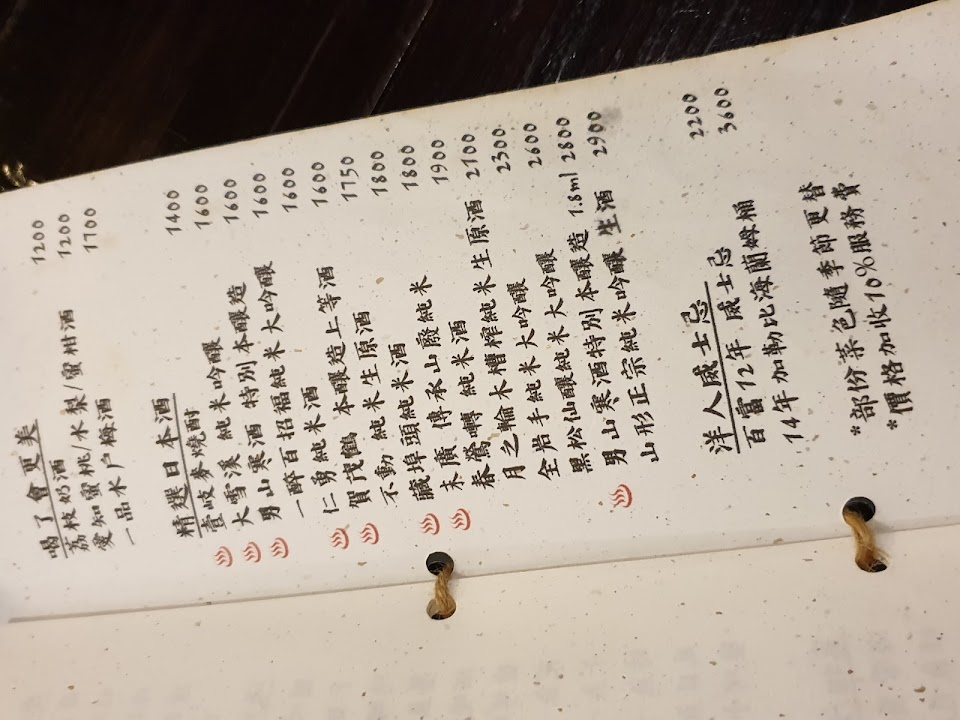 喝了會更美
荔枝奶酒 1200
愛知蜜桃/水梨/蜜柑酒 1200
一品水户梅酒 1700
精選日本酒
壹岐麥燒酎 1400
大雪溪 純米吟釀 1600
男山寒酒 特別本釀造 1600
一醉百招福純米大吟釀 1600
仁勇純米酒 1600
賀茂鶴 本釀造上等酒 1600
不動 純米生原酒 1750
藏埠頭純米酒 1800
末廣 傳承山廢純米 1800
春鶯囀 純米酒 1900
月之輪木槽榨純米生原酒 2100
全岩手純米大吟釀 2300
黑松仙釀純米大吟釀 2600
男山寒酒特別本釀造 1.8ml 2800
山形正宗純米吟釀 生酒 2900
洋人威士忌
百富12年 威士忌 2200
14年加勒比海蘭姆桶 3600
*部份菜色隨季節更替
*價格加收10%服務費